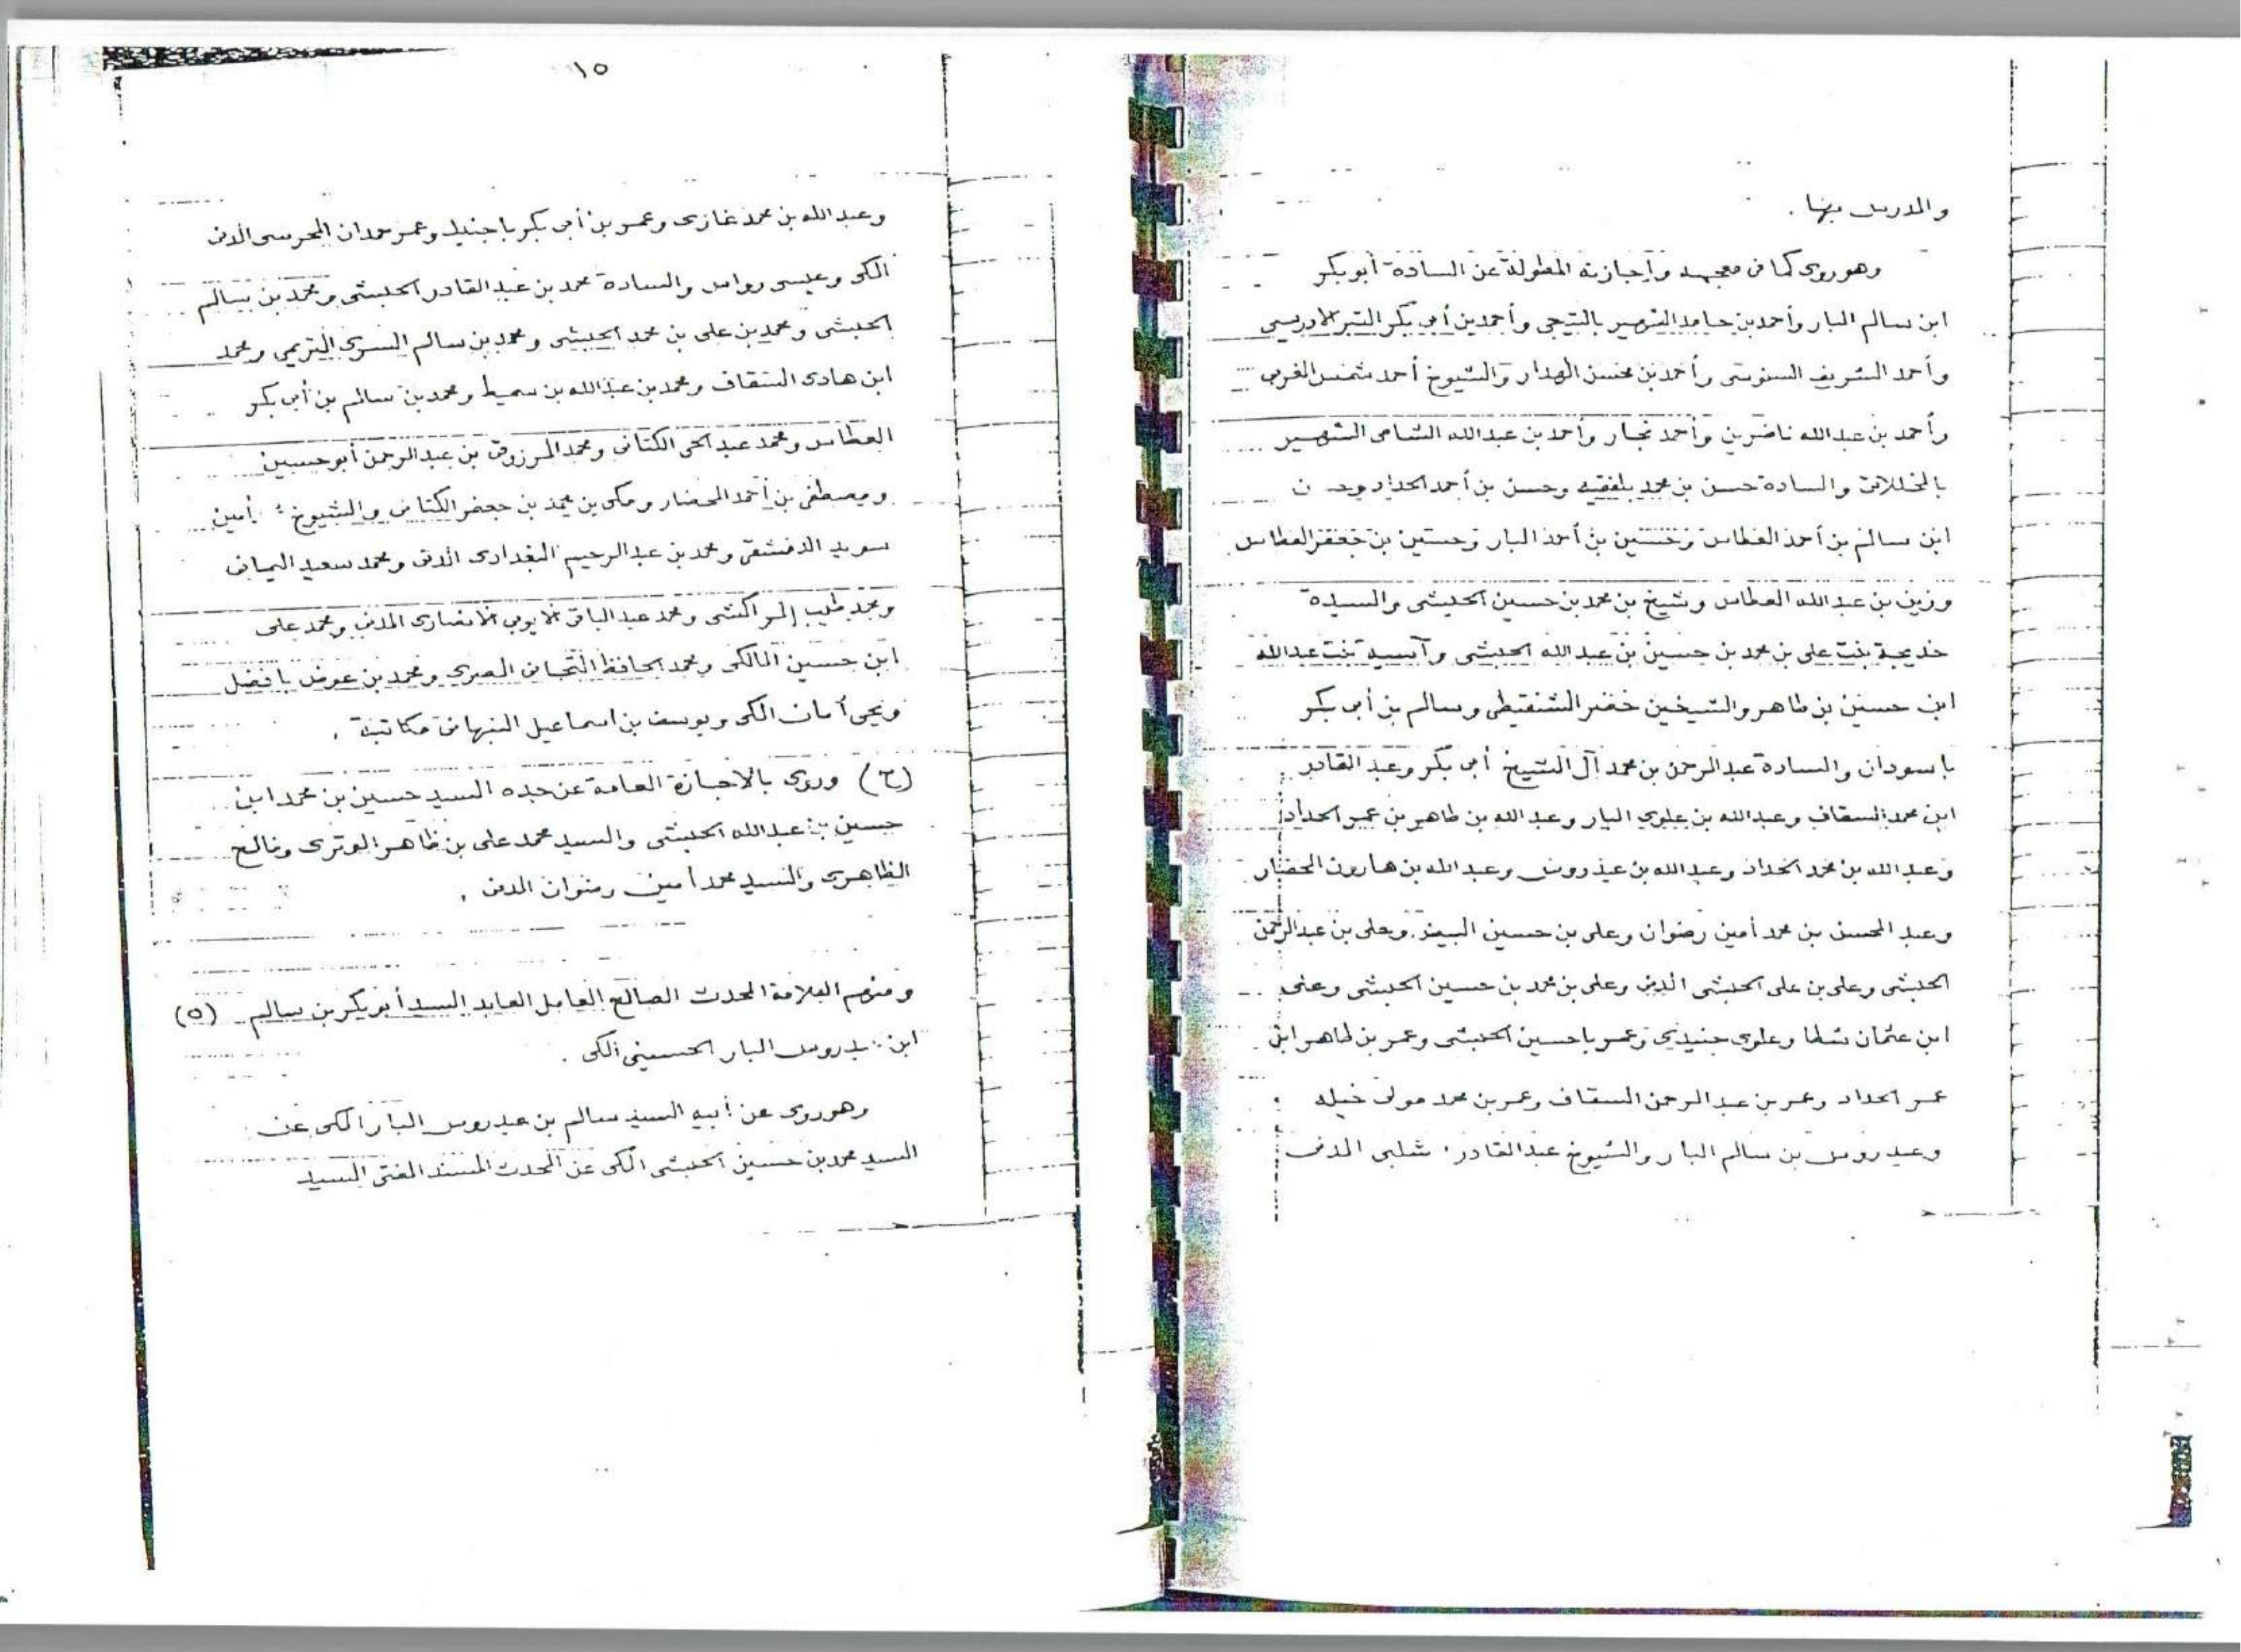 والدريس بها .
وهو روى كما في معجمه وإجازته المطولة عن السادة أبو بكر
ابن سالم البار وأحمد بن حامد الشهير بالتيجي وأحمد بن أبي بكر التبر الادريسي
وأحمد الشريف السنوسي وأحمد بن محسن الهدار والشيوخ أحمد شمس المغربي
وأحمد بن عبدالله ناضرين وأحمد نجار وأحمد بن عبدالله الشامي الشهير
بالمخللاتي والسادة حسن بن محمد بلفقيه وحسن بن أحمد الحداد
ابن سالم بن أحمد العطاس وحسين بن أحمد البار وحسين بن جعفر العطاس
وزين بن عبدالله العطاس وشيخ بن محمد بن حسين الحبشي والسيدة
خديجة بنت علي بن محمد بن حسين بن عبدالله الحبشي وآسيه بنت عبدالله
ابن حسين بن طاهر والشيخين خضر الشنقيطي وسالم بن أبي بكر
باسودان والسادة عبدالرحمن بن محمد آل الشيخ أبي بكر وعبد القادر
ابن محمد السقاف وعبدالله بن علوي البار وعبد الله بن طاهر بن عمر الحداد
وعبد الله بن محمد الحداد وعبدالله بن عيدروس وعبد الله بن هارون المحضار
وعبد المحسن بن محمد أمين رضوان وعلي بن حسين البيض وعلي بن عبدالرحمن
الحبشي وعلي بن علي الحبشي المدني وعلي بن محمد بن حسين الحبشي وعلي
ابن عثمان شطا وعلوي جنيدي وعمر باحسين الحبشي وعمر بن طاهر ابن
عمر الحداد وعمر بن عبد الرحمن السقاف وعمر بن محمد مولى خيله
وعيدروس بن سالم البار والشيوخ عبدالقادر شلبي المدني
١٥
وعبد الله بن محمد غازي وعمر بن أبي بكر باجنيد وعمر حمدان المحرسي المدني
المكي وعيسى رواس والسادة محمد بن عبد القادر الحبشي ومحمد بن سالم
الحبشي ومحمد بن علي بن محمد الحبشي ومحمد بن سالم السري التريمي ومحمد
ابن هادي السقاف ومحمد بن عبدالله بن سميط ومحمد بن سالم بن أبي بكر
العطاس ومحمد عبد الحي الكتاني ومحمد المرزوقي بن عبد الرحمن أبو حسين
ومصطفى بن أحمد المحضار ومكي بن محمد بن جعفر الكتاني والشيوخ : أمين
سويد الدمشقي ومحمد بن عبد الرحيم البغدادي المدني ومحمد سعيد اليماني
ومحمد طيب المراكشي ومحمد عبد الباقي الايوبي الانصاري المدني ومحمد علي
ابن حسين المالكي ومحمد الحافظ التجاني المصري ومحمد بن عوض بافضل
ويحي أمان المكي ويوسف بن اسماعيل النبهاني مكاتبة .
(ح) وروى بالاجازة العامة عن جده السيد حسين بن محمد ابن
حسين بن عبدالله الحبشي والسيد محمد علي بن ظاهر الوتري وفالح
الظاهري والسيد محمد أمين رضوان المدني .
ومنهم العلامة المحدث الصالح العامل العابد السيد أبو بكر بن سالم (٥)
ابن عيدروس البار الحسيني المكي .
وهو روى عن أبيه السيد سالم بن عيدروس البار المكي عن
السيد محمد بن حسين الحبشي المكي عن المحدث المسند المفتي السيد